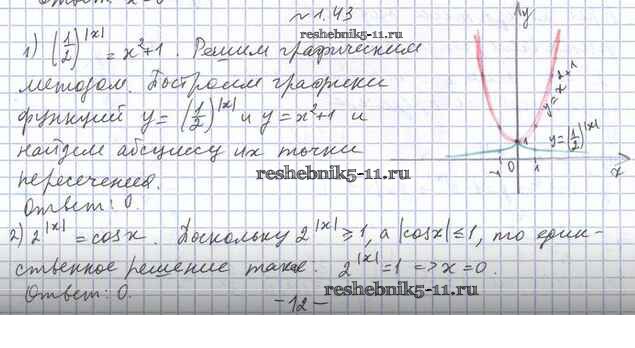 №1.43
reshebnik5-11.ru
1) (1/2)^|x| = x²+1. Решим графическим
методом. Построим графики
функций y=(1/2)^|x| и y=x²+1 и
найдем абсциссу их точки
пересечения.
Ответ: 0.
reshebnik5-11.ru
y
y=x²+1
1
y=(1/2)^|x|
-1 0 1 x
2) 2^|x| = cosx. Поскольку 2^|x| ≥ 1, а |cosx| ≤ 1, то един-
ственное решение такое: 2^|x| = 1 => x = 0.
Ответ: 0.
reshebnik5-11.ru
-12-